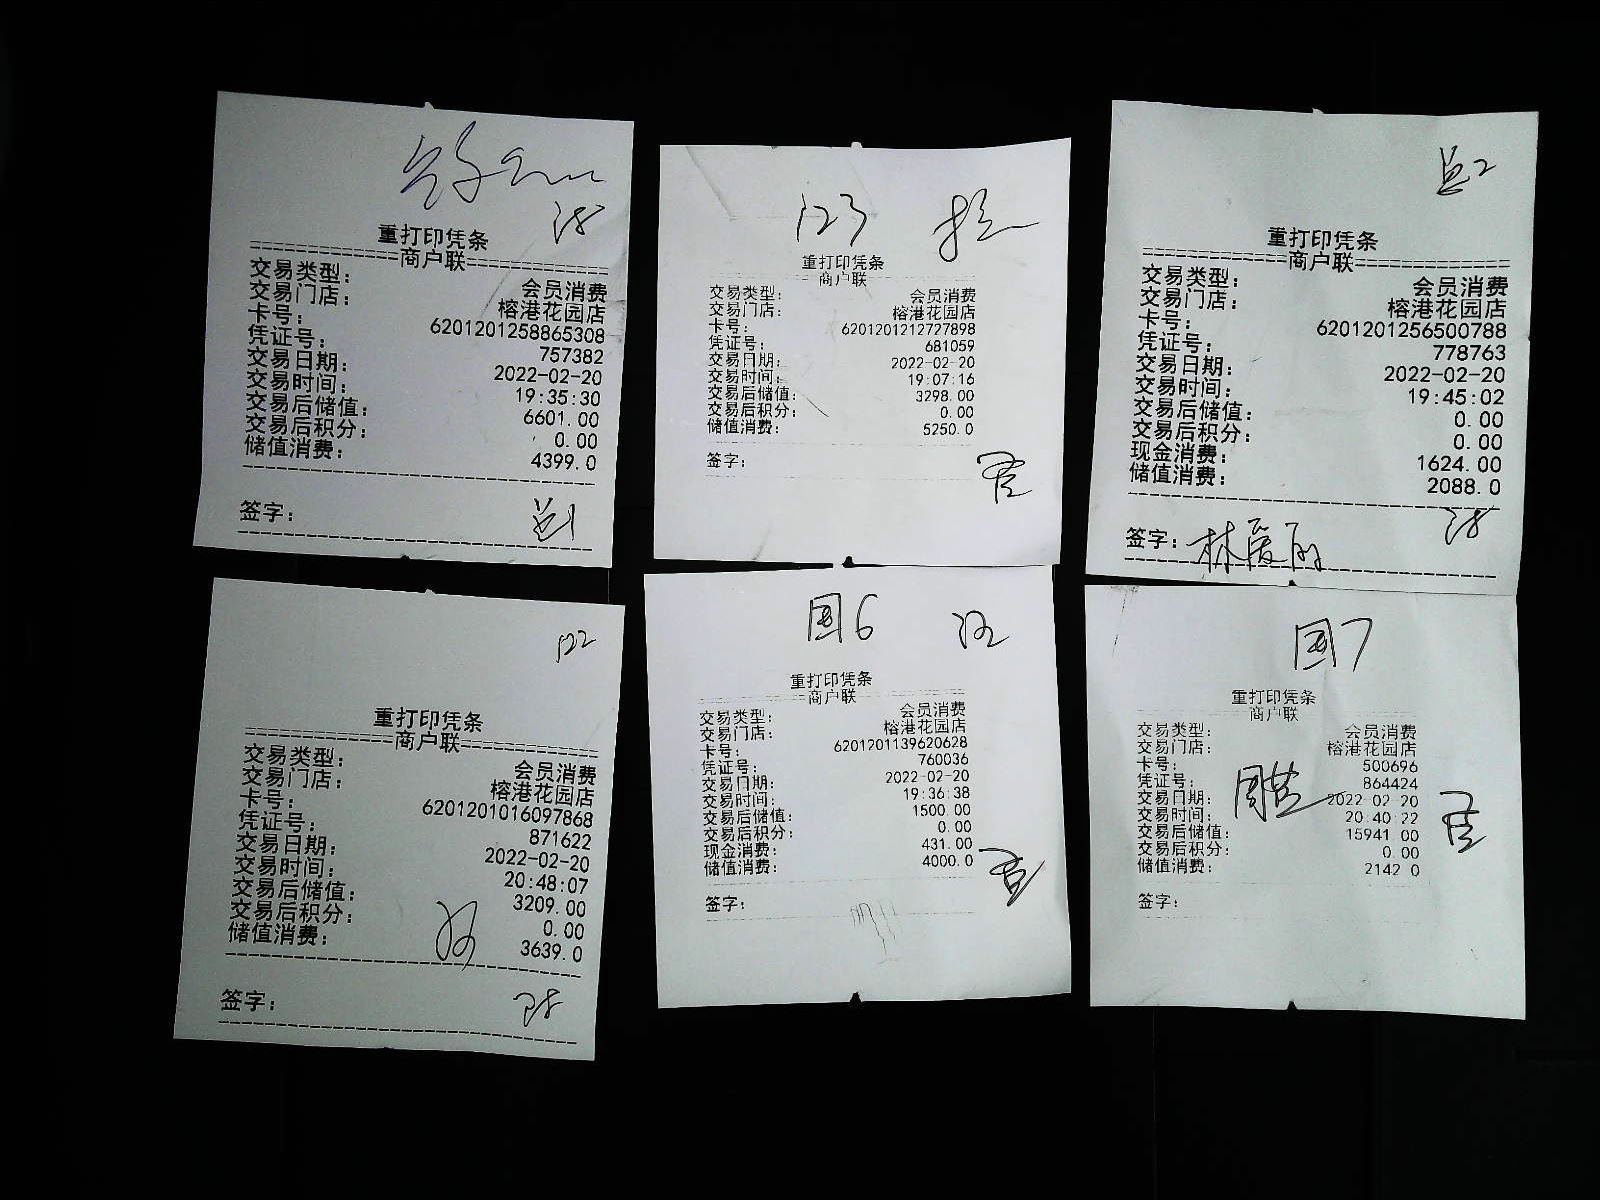 重打印凭条
商户联
交易类型： 会员消费
交易门店： 榕港花园店
卡号： 6201201258865308
凭证号： 757382
交易日期： 2022-02-20
交易时间： 19:35:30
交易后储值： 6601.00
交易后积分： 0.00
储值消费： 4399.0
签字：
123
重打印凭条
商户联
交易类型： 会员消费
交易门店： 榕港花园店
卡号： 6201201212727898
凭证号： 681059
交易日期： 2022-02-20
交易时间： 19:07:16
交易后储值： 3298.00
交易后积分： 0.00
储值消费： 5250.0
签字：
重打印凭条
商户联
交易类型： 会员消费
交易门店： 榕港花园店
卡号： 6201201256500788
凭证号： 778763
交易日期： 2022-02-20
交易时间： 19:45:02
交易后储值： 0.00
交易后积分： 0.00
现金消费： 1624.00
储值消费： 2088.0
签字：
重打印凭条
商户联
交易类型： 会员消费
交易门店： 榕港花园店
卡号： 6201201016097868
凭证号： 871622
交易日期： 2022-02-20
交易时间： 20:48:07
交易后储值： 3209.00
交易后积分： 0.00
储值消费： 3639.0
签字：
国6
重打印凭条
商户联
交易类型： 会员消费
交易门店： 榕港花园店
卡号： 6201201139620628
凭证号： 760036
交易日期： 2022-02-20
交易时间： 19:36:38
交易后储值： 1500.00
交易后积分： 0.00
现金消费： 431.00
储值消费： 4000.0
签字：
国7
重打印凭条
商户联
交易类型： 会员消费
交易门店： 榕港花园店
卡号： 500696
凭证号： 864424
交易日期： 2022-02-20
交易时间： 20:40:22
交易后储值： 15941.00
交易后积分： 0.00
储值消费： 2142.0
签字：